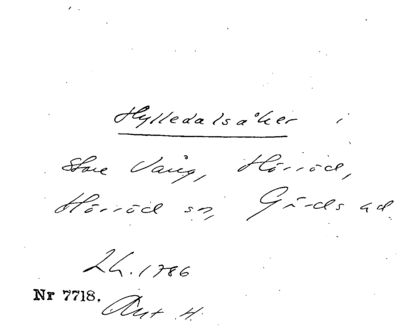 Hylledalsåker i
Store Vång, Hörröd,
Hörröd sn, Gärds hd
Lh. 1786
Nr 7718.